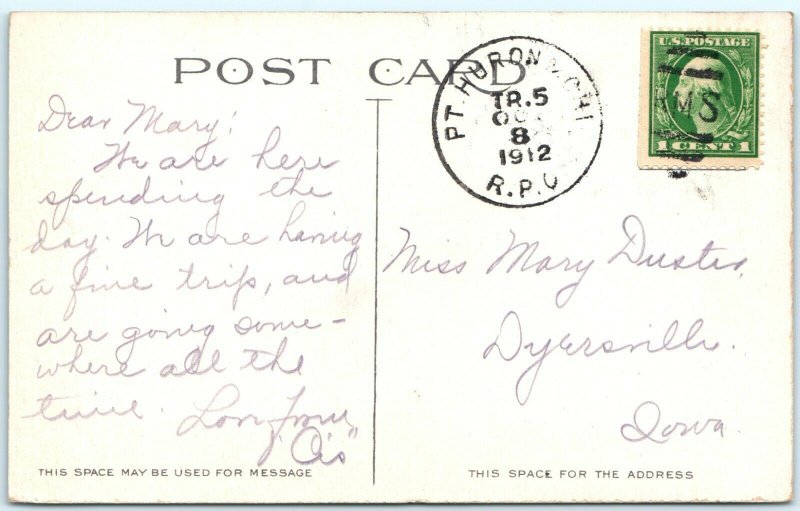 POST CARD
PT. HURON & CHI
TR.5
OC
8
1912
R.P.O
U.S. POSTAGE
RMS
1 CENT 1
Dear Mary:
We are here
spending the
day. We are having
a fine trip, and
are going some-
where all the
time. Love from
"Cis"
Miss Mary Duster,
Dyersville.
Iowa.
THIS SPACE MAY BE USED FOR MESSAGE
THIS SPACE FOR THE ADDRESS